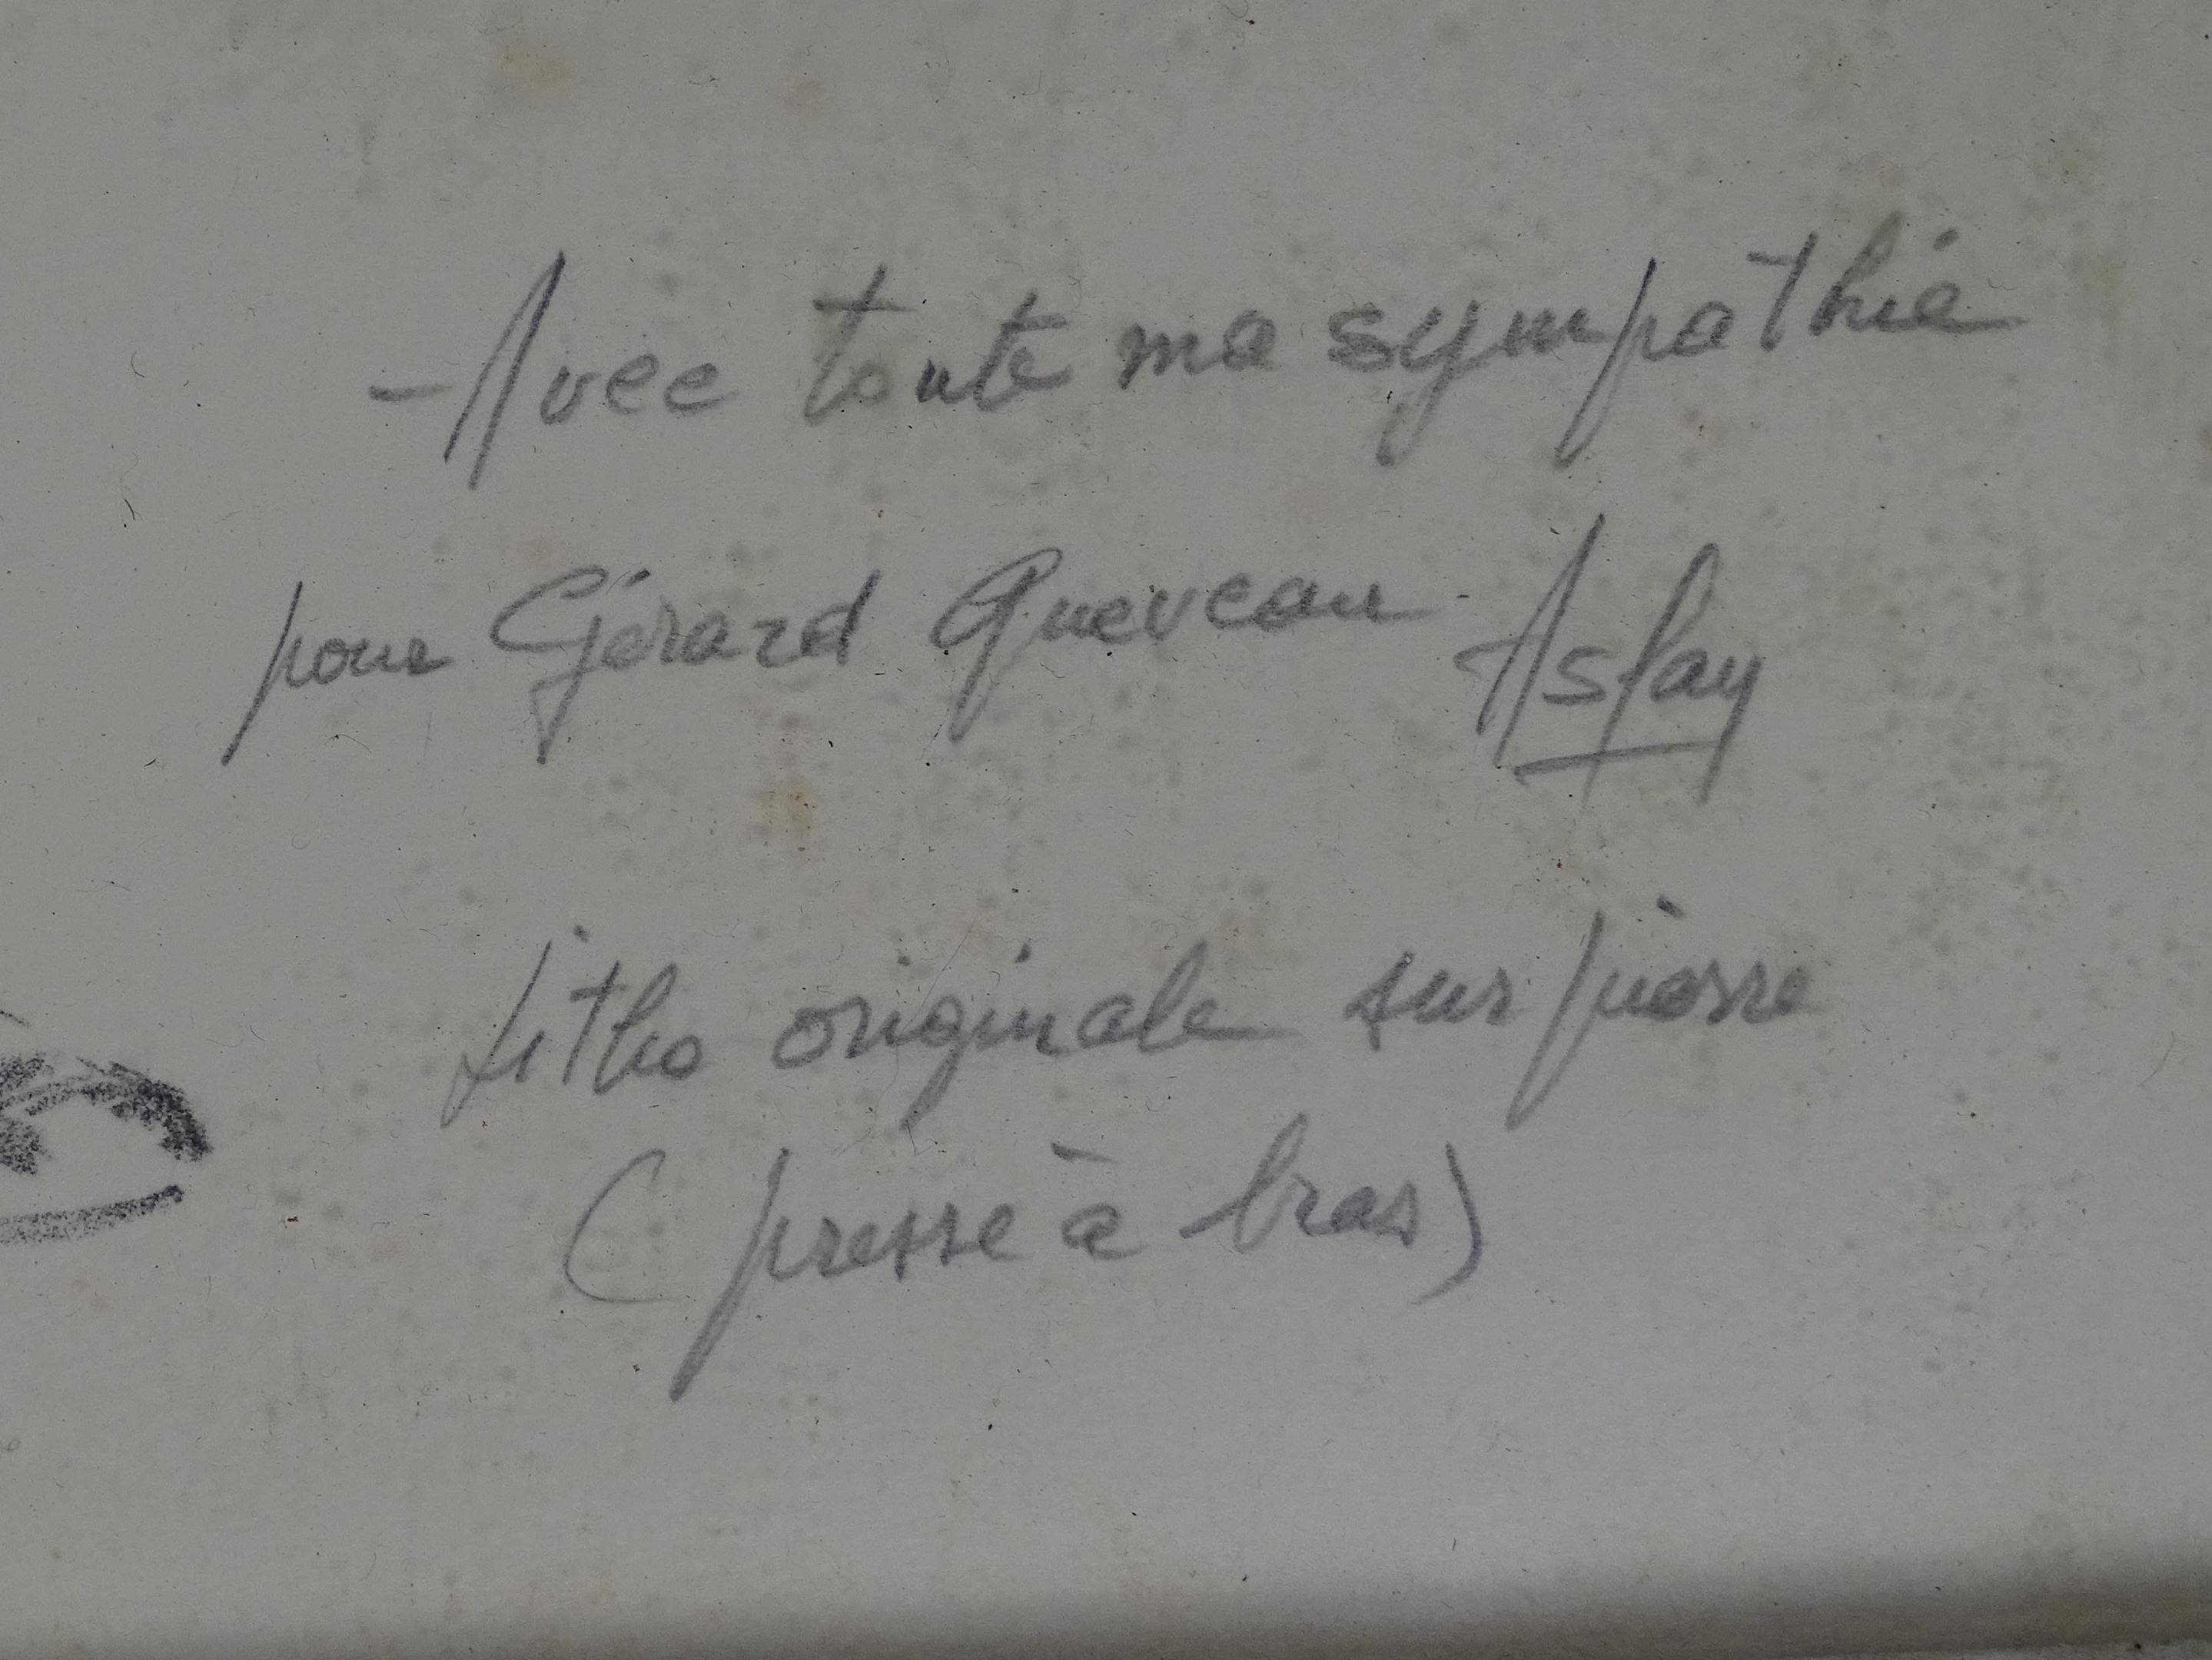 Avec toute ma sympathie
pour Gérard Queveau Asfay
Litho originale sur pierre
(presse à bras)